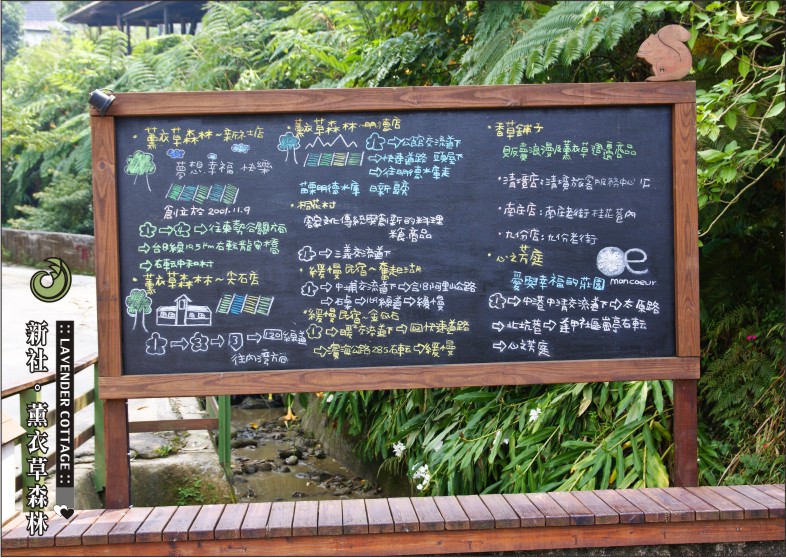 薰衣草森林~新社店
夢想.幸福.快樂
創立於 2001.11.9
往東勢公關
右轉中和村
薰衣草森林~尖石店
1
3
3
120縣道
往內灣方向
薰衣草森林~明德店
1
公館交流道下
快速道路 頭屋下
往明德水庫走
苗栗明德水庫
桐花村
客家文化傳統與創新的料理
米食商品
1
三義交流道下
緩慢民宿~奮起湖
1
中埔交流道下
台18阿里山公路
石卓
169縣道
緩慢
緩慢民宿~金瓜石
1
暖暖交流道下
快速道路
濱海公路 285右轉
緩慢
香草鋪子
販賣浪漫及薰衣草週邊商品
清境店:清境旅客服務中心 1F
南庄店:南庄老街桂花巷內
九份店:九份老街
心之芳庭
愛與幸福的莊園
moncoeur
1
中港中清交流道下
北坑巷
逢甲社區崗亭右轉
心之芳庭
新社。薰衣草森林
:: LAVENDER COTTAGE ::